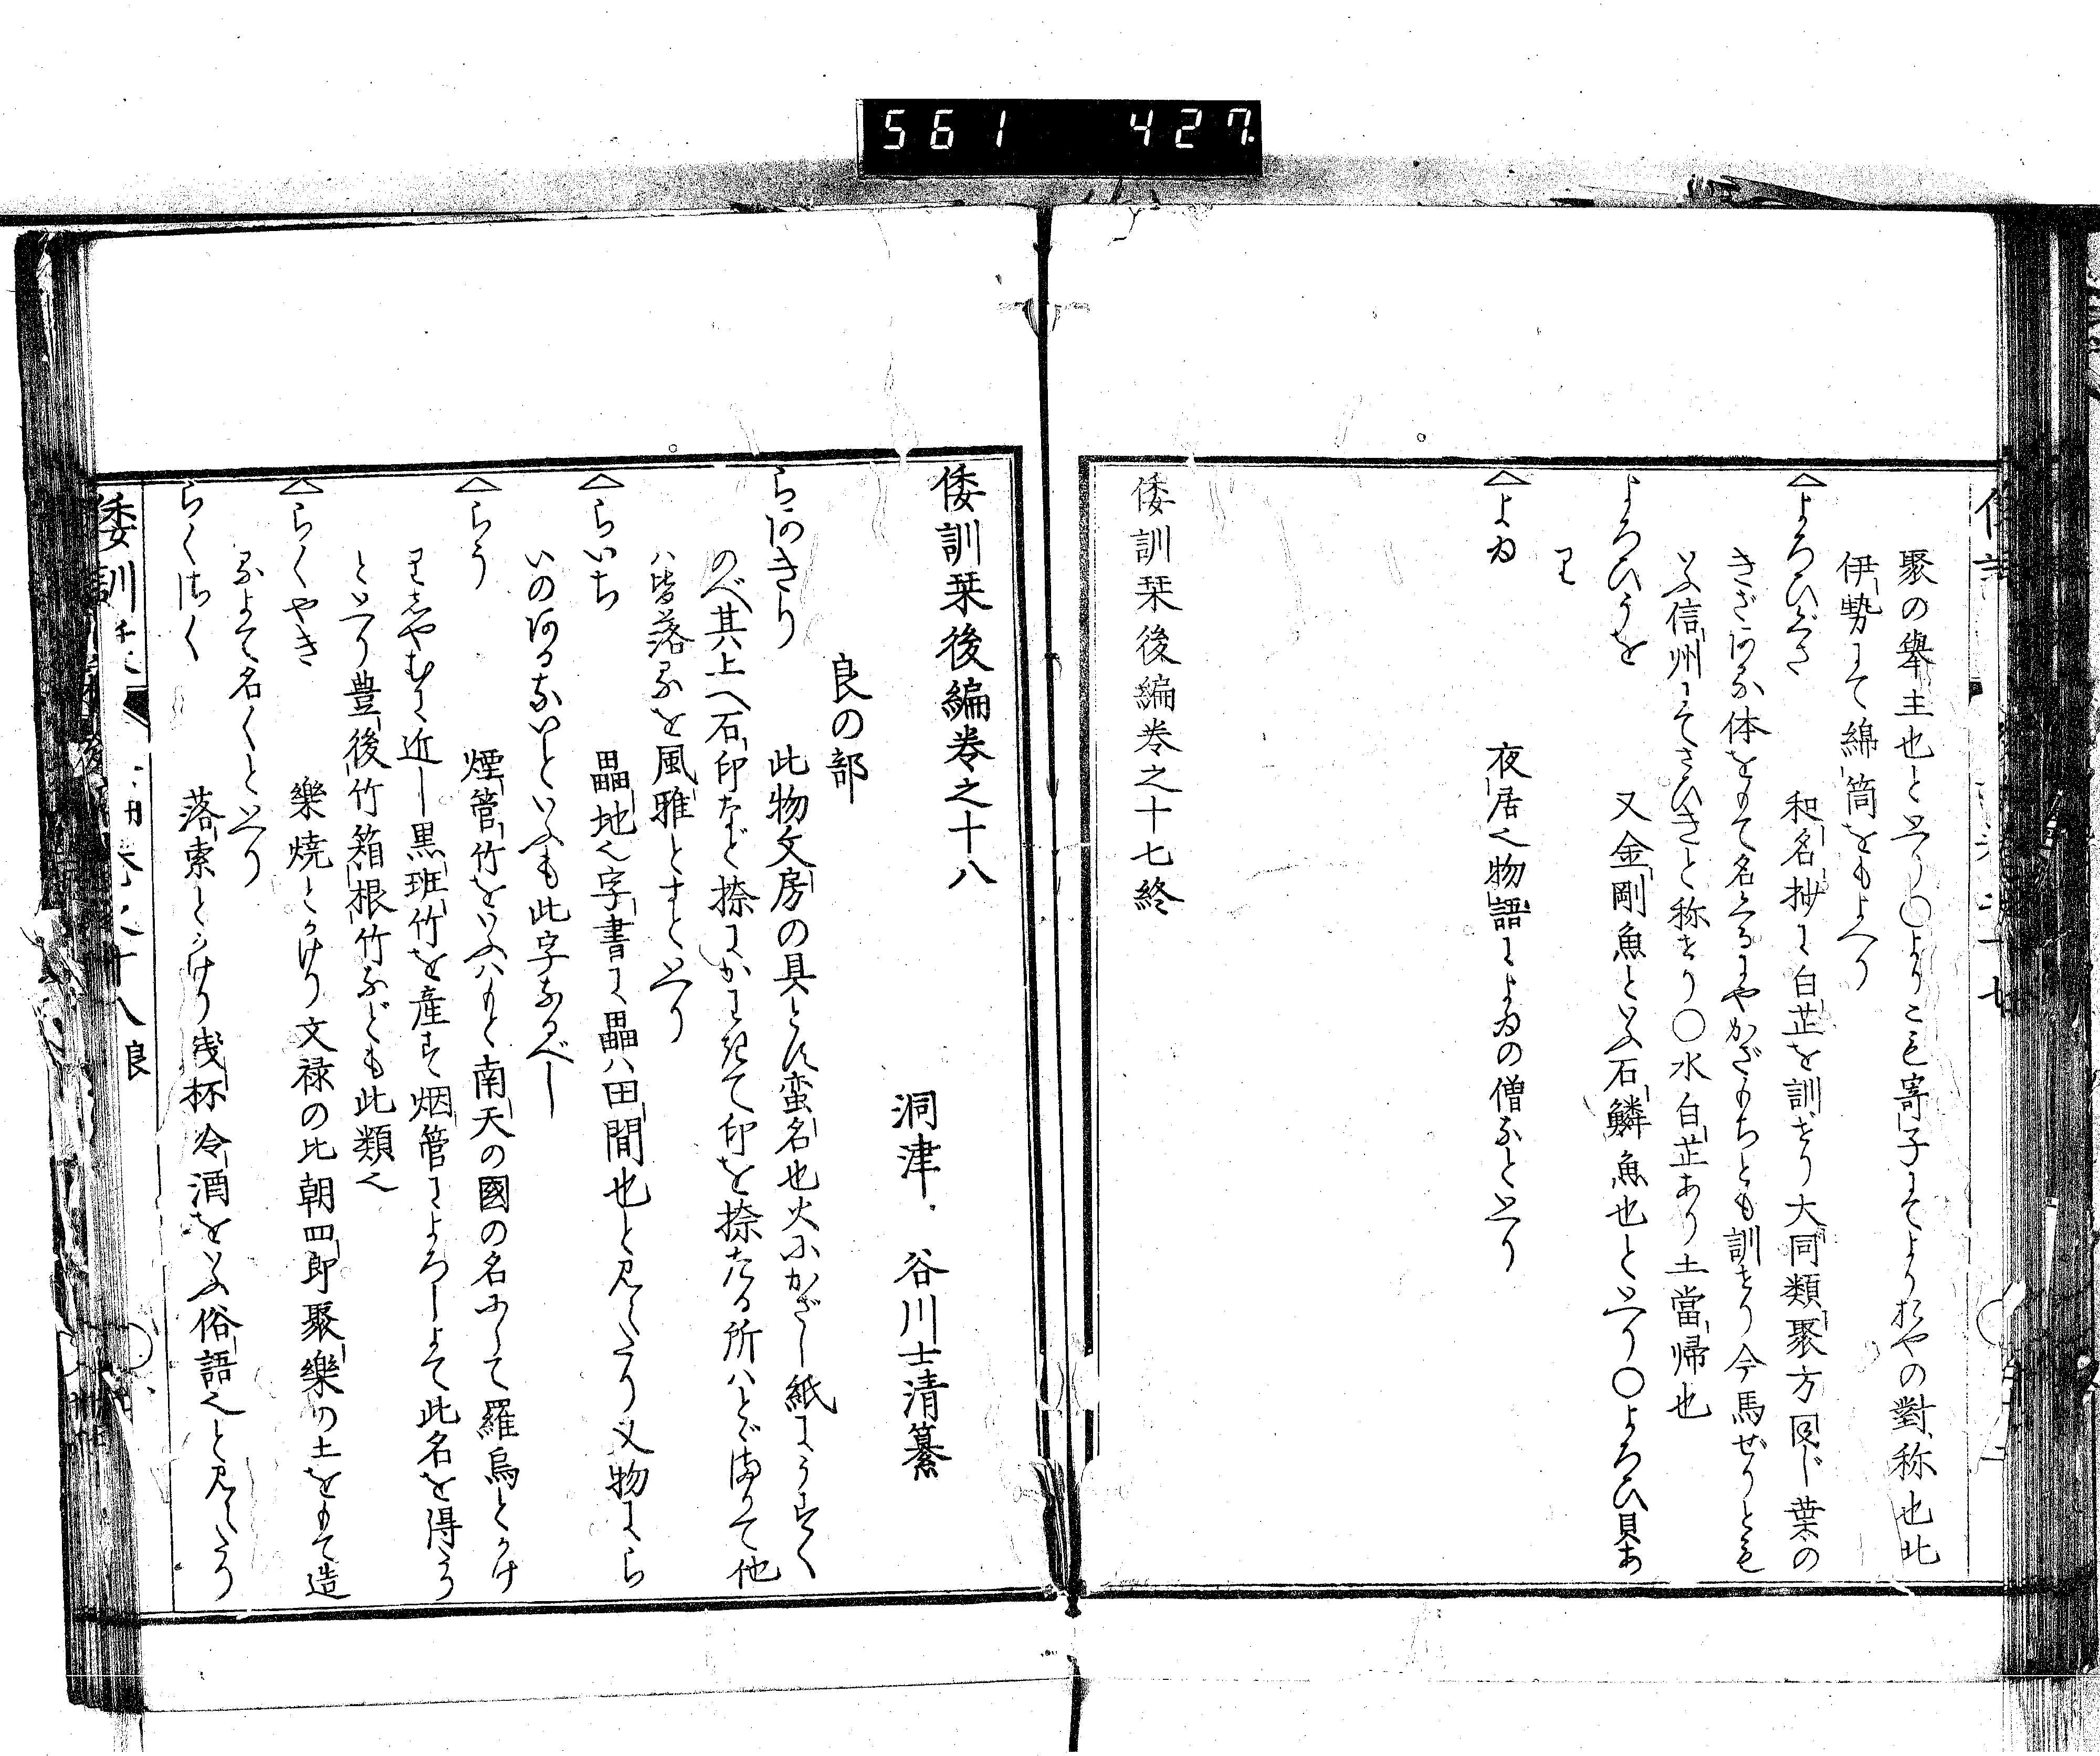 561 427
聚の擧主也といへり〇よりこも寄子にてよりおやの對称也此
伊勢にて綿筒をもよへり
△よろひぐさ 和名抄に白芷を訓せり大同類聚方同じ葉の
きざある体をもて名くるにやかざもちとも訓せり今馬ぜりとも
いふ信州にてさひきと称せり〇水白芷あり土當帰也
よろひうを 又金剛魚といふ石鱗魚也といへり〇よろひ貝あ
り
△よゐ 夜居也物語によゐの僧なといへり
倭訓栞後編巻之十七終
倭訓栞後編巻之十八
洞津 谷川士清纂
良の部
らあきり 此物文房の具とす蛮名也火にかざし紙にうすく
のべ其上へ石印など捺にかわきて印を捺たる所ハとゞまりて他
ハ皆落るを風雅とすといへり
△らいち 畾地也字書に畾ハ田間也と見えたり又物にら
いのあるないといふも此字なるべし
△らう 煙管竹をいふハもと南天の國の名にして羅烏とかけ
りしやむに近し黒班竹を産す烟管によろしよて此名を得たり
といへり豊後竹箱根竹なども此類也
△らくやき 樂焼とかけり文禄の比朝四郎聚樂の土をもて造
るよて名くといへり
らくさく 落索とかけり残杯冷酒をいふ俗語也と見えたり
良